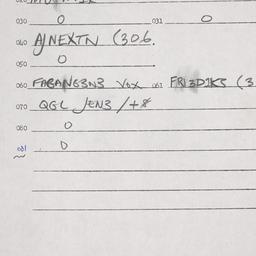 030 O 031 O
040 AJNEXTN (306.
050 O
060 FABANG3N3 VOX 061 FRI3D1K5 (3
070 QGL JEN3 /+8
080 O
081 D